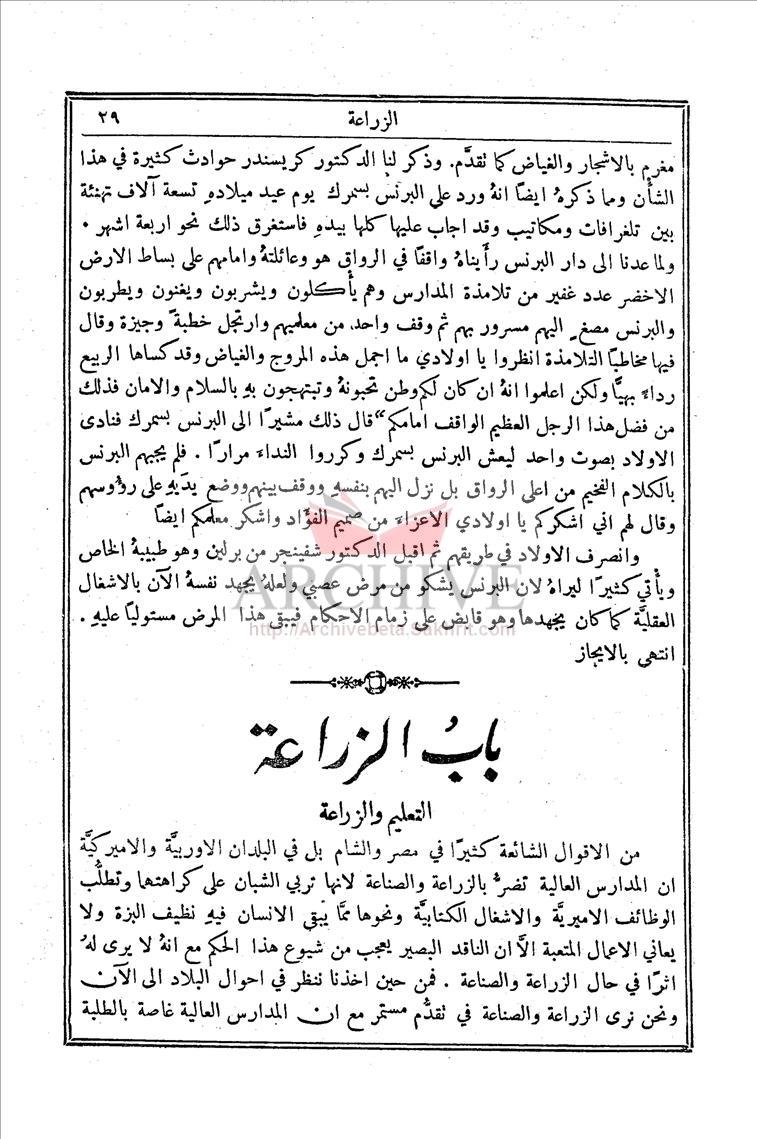 الزراعة ٢٩
مغرم بالاشجار والغياض كما تقدَّم. وذكر لنا الدكتور كريسندر حوادث كثيرة في هذا
الشأن ومما ذكرهُ ايضاً انهُ ورد على البرنس بسمرك يوم عيد ميلادهِ تسعة آلاف تهنئة
بين تلغرافات ومكاتيب وقد اجاب عليها كلها بيدهِ فاستغرق ذلك نحو اربعة اشهر .
ولما عدنا الى دار البرنس رأيناهُ واقفاً في الرواق هو وعائلتهُ وامامهم على بساط الارض
الاخضر عدد غفير من تلامذة المدارس وهم يأكلون ويشربون ويغنون ويطربون
والبرنس مصغٍ اليهم مسرور بهم ثم وقف واحد من معلميهم وارتجل خطبةً وجيزة وقال
فيها مخاطباً التلامذة انظروا يا اولادي ما اجمل هذه المروج والغياض وقد كساها الربيع
رداءً بهيًّا ولكن اعلموا انهُ ان كان لكم وطن تحبونهُ وتبتهجون بهِ بالسلام والامان فذلك
من فضل هذا الرجل العظيم الواقف امامكم“ قال ذلك مشيراً الى البرنس بسمرك فنادى
الاولاد بصوت واحد ليعش البرنس بسمرك وكرروا النداء مراراً . فلم يجبهم البرنس
بالكلام الفخيم من اعلى الرواق بل نزل اليهم بنفسهِ ووقف بينهم ووضع يدَيهِ على رؤوسهم
وقال لهم اني اشكركم يا اولادي الاعزاء من صميم الفؤاد واشكر معلمكم ايضاً
وانصرف الاولاد في طريقهم ثم اقبل الدكتور شفينجر من برلين وهو طبيبهُ الخاص
ويأتي كثيراً ليراهُ لان البرنس يشكو من مرض عصبي ولعلهُ يجهد نفسهُ الآن بالاشغال
العقليَّة كما كان يجهدها وهو قابض على زمام الاحكام فيبقى هذا المرض مستولياً عليهِ .
انتهى بالايجاز
ARCHIVE
http://Archivebeta.Sakhrit.com
بابُ الزراعة
التعليم والزراعة
من الاقوال الشائعة كثيراً في مصر والشام بل في البلدان الاوربيَّة والاميركيَّة
ان المدارس العالية تضرُّ بالزراعة والصناعة لانها تربي الشبان على كراهتها وتطلُّب
الوظائف الاميريَّة والاشغال الكتابيَّة ونحوها ممَّا يبقي الانسان فيهِ نظيف البزة ولا
يعاني الاعمال المتعبة الاَّ ان الناقد البصير يعجب من شيوع هذا الحكم مع انهُ لا يرى لهُ
اثراً في حال الزراعة والصناعة . فمن حين اخذنا ننظر في احوال البلاد الى الآن
ونحن نرى الزراعة والصناعة في تقدُّم مستمر مع ان المدارس العالية غاصة بالطلبة